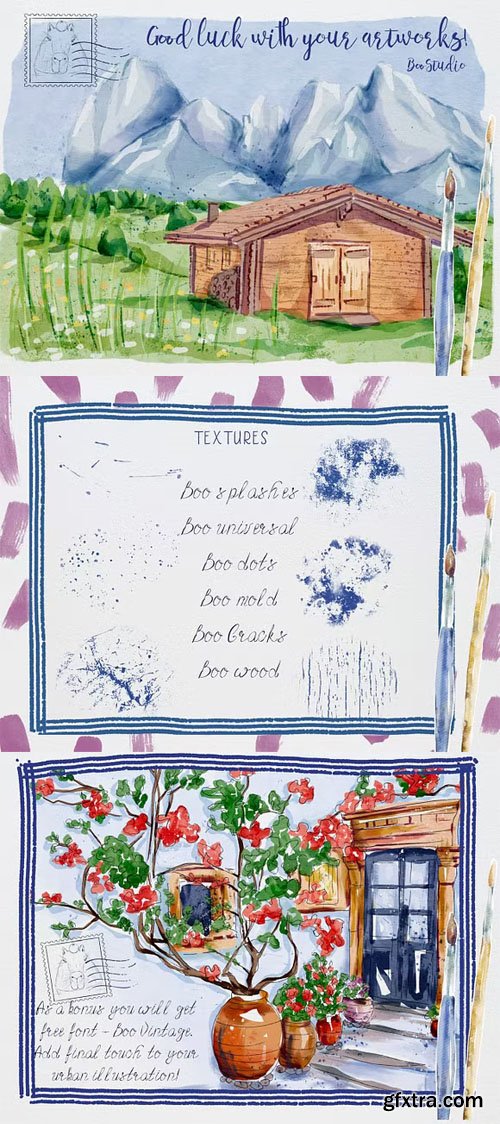 Good luck with your artworks!
Boo Studio
TEXTURES
Boo splashes
Boo universal
Boo dots
Boo mold
Boo Cracks
Boo wood
As a bonus you will get
free font - Boo Vintage.
Add final touch to your
urban illustration!
gfxtra.com